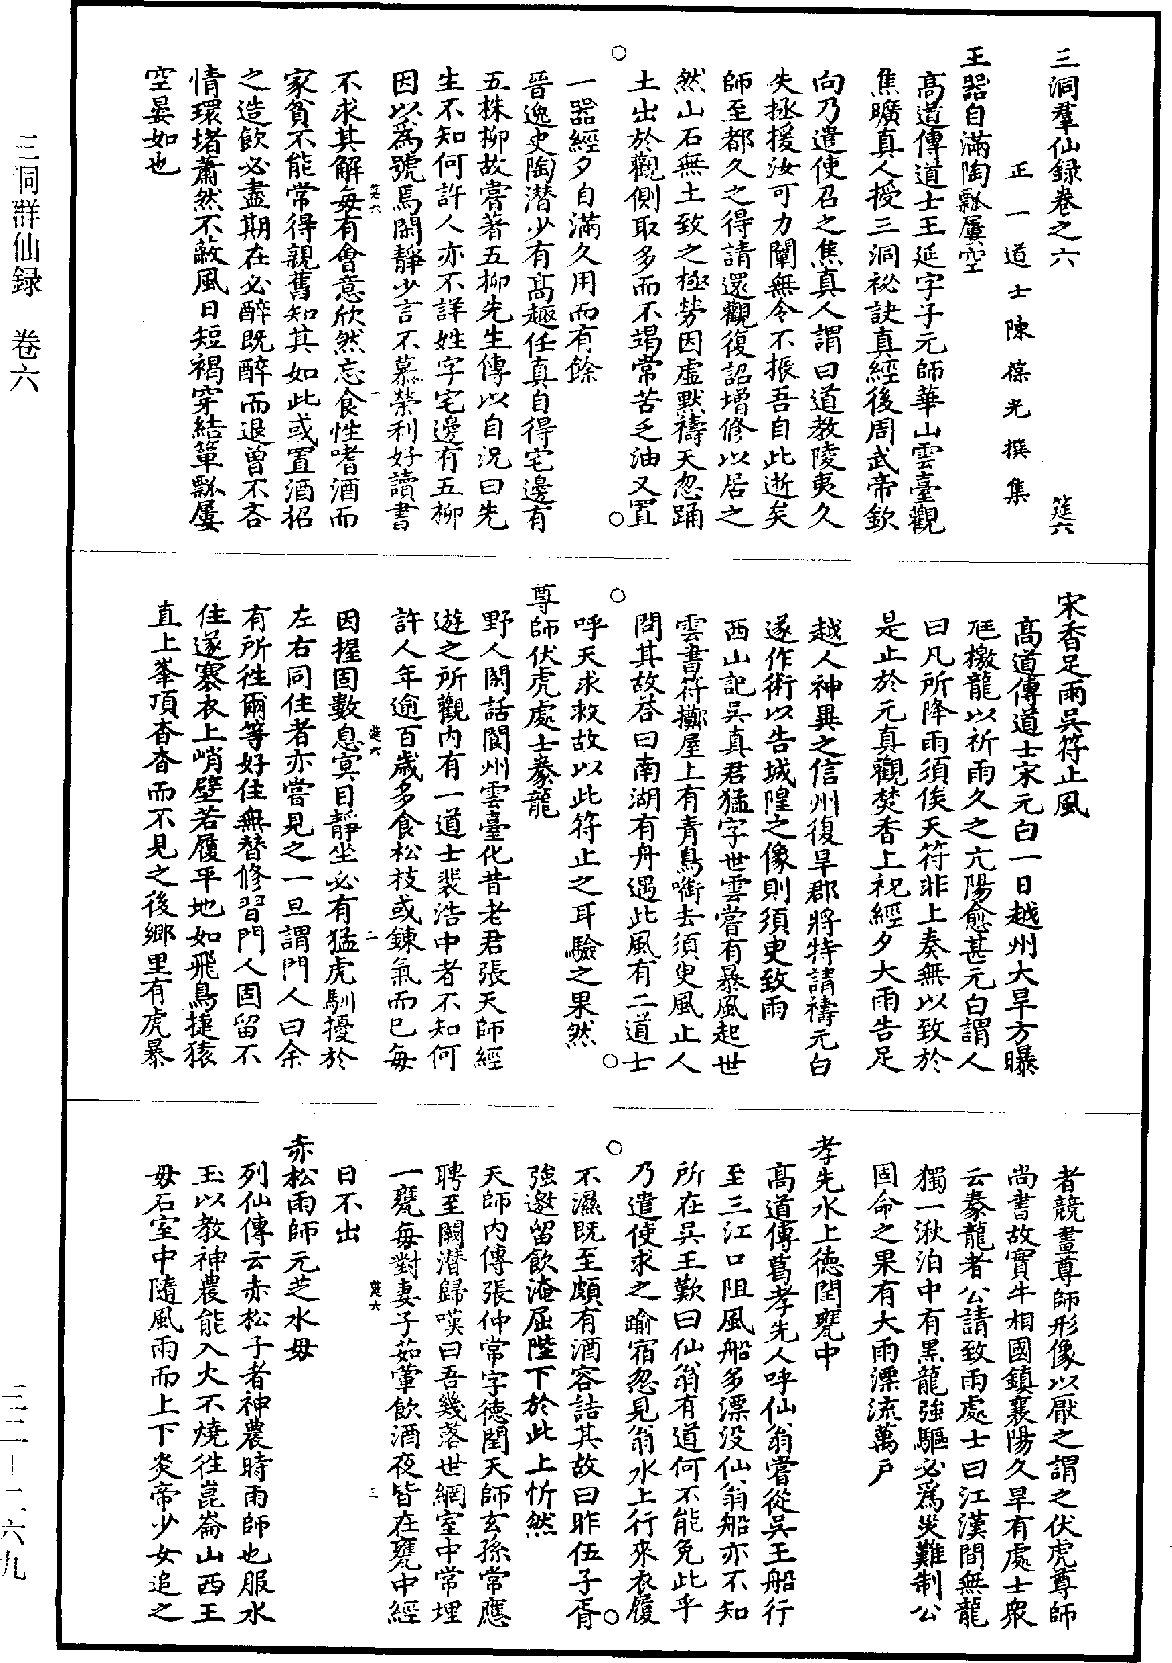 三洞羣仙録卷之六　筵六
正一道士陳葆光撰集
王器自滿陶瓢屢空
髙道傳道士王延字子元師華山雲臺觀
焦曠真人授三洞祕訣真經後周武帝欽
向乃遣使召之焦真人謂曰道教陵夷久
失拯援汝可力闡無令不振吾自此逝矣
師至都久之得請還觀復詔增修以居之
然山石無土致之極勞因虛默禱天忽踊
土出於觀側取多而不竭常苦乏油又置
一器經夕自滿久用而有餘
晉逸史陶潜少有髙趣任真自得宅邊有
五株柳故嘗著五柳先生傳以自況曰先
生不知何許人亦不詳姓字宅邊有五柳
因以為號焉閑靜少言不慕榮利好讀書
筵六　一
不求其解每有會意欣然忘食性嗜酒而
家貧不能常得親舊知其如此或置酒招
之造飲必盡期在必醉既醉而退曽不吝
情環堵蕭然不蔽風日短褐穿結簞瓢屢
空晏如也
宋香足雨吳符止風
髙道傳道士宋元白一日越州大旱方曝
尫檄龍以祈雨久之亢陽愈甚元白謂人
曰凡所降雨須俟天符非上奏無以致於
是止於元真觀焚香上祝經夕大雨告足
越人神異之信州復旱郡將特請禱元白
遂作術以告城隍之像則須臾致雨
西山記吳真君猛字世雲嘗有暴風起世
雲書符擲屋上有青鳥啣去須臾風止人
問其故荅曰南湖有舟遇此風有二道士
呼天求救故以此符止之耳驗之果然
尊師伏虎處士豢龍
野人閑話閬州雲臺化昔老君張天師經
遊之所觀内有一道士裴浩中者不知何
許人年逾百歲多食松枝或鍊氣而已每
筵六　二
因握固數息冥目靜坐必有猛虎馴擾於
左右同住者亦嘗見之一旦謂門人曰余
有所往爾等好住無替修習門人固留不
住遂褰衣上峭壁若履平地如飛鳥捷猿
直上峯頂杳杳而不見之後鄉里有虎暴
者競畫尊師形像以厭之謂之伏虎尊師
尚書故實牛相國鎮襄陽久旱有處士衆
云豢龍者公請致雨處士曰江漢間無龍
獨一湫泊中有黑龍強驅必為災難制公
固命之果有大雨漂流萬戸
孝先水上德閏甕中
髙道傳葛孝先人呼仙翁嘗從吳王船行
至三江口阻風船多漂没仙翁船亦不知
所在吳王歎曰仙翁有道何不能免此乎
乃遣使求之踰宿忽見翁水上行來衣履
不濕既至頗有酒容詰其故曰昨伍子胥
強邀留飲淹屈陛下於此上忻然
天師内傳張仲常字德閏天師玄孫常應
聘至闕潜歸嘆曰吾幾落世網室中常埋
一甕每對妻子茹葷飲酒夜皆在甕中經
筵六　三
日不出
赤松雨師元芝水母
列仙傳云赤松子者神農時雨師也服水
玉以教神農能入火不燒往崑崙山西王
母石室中隨風雨而上下炎帝少女追之
三洞群仙録　卷六
三二—二六九